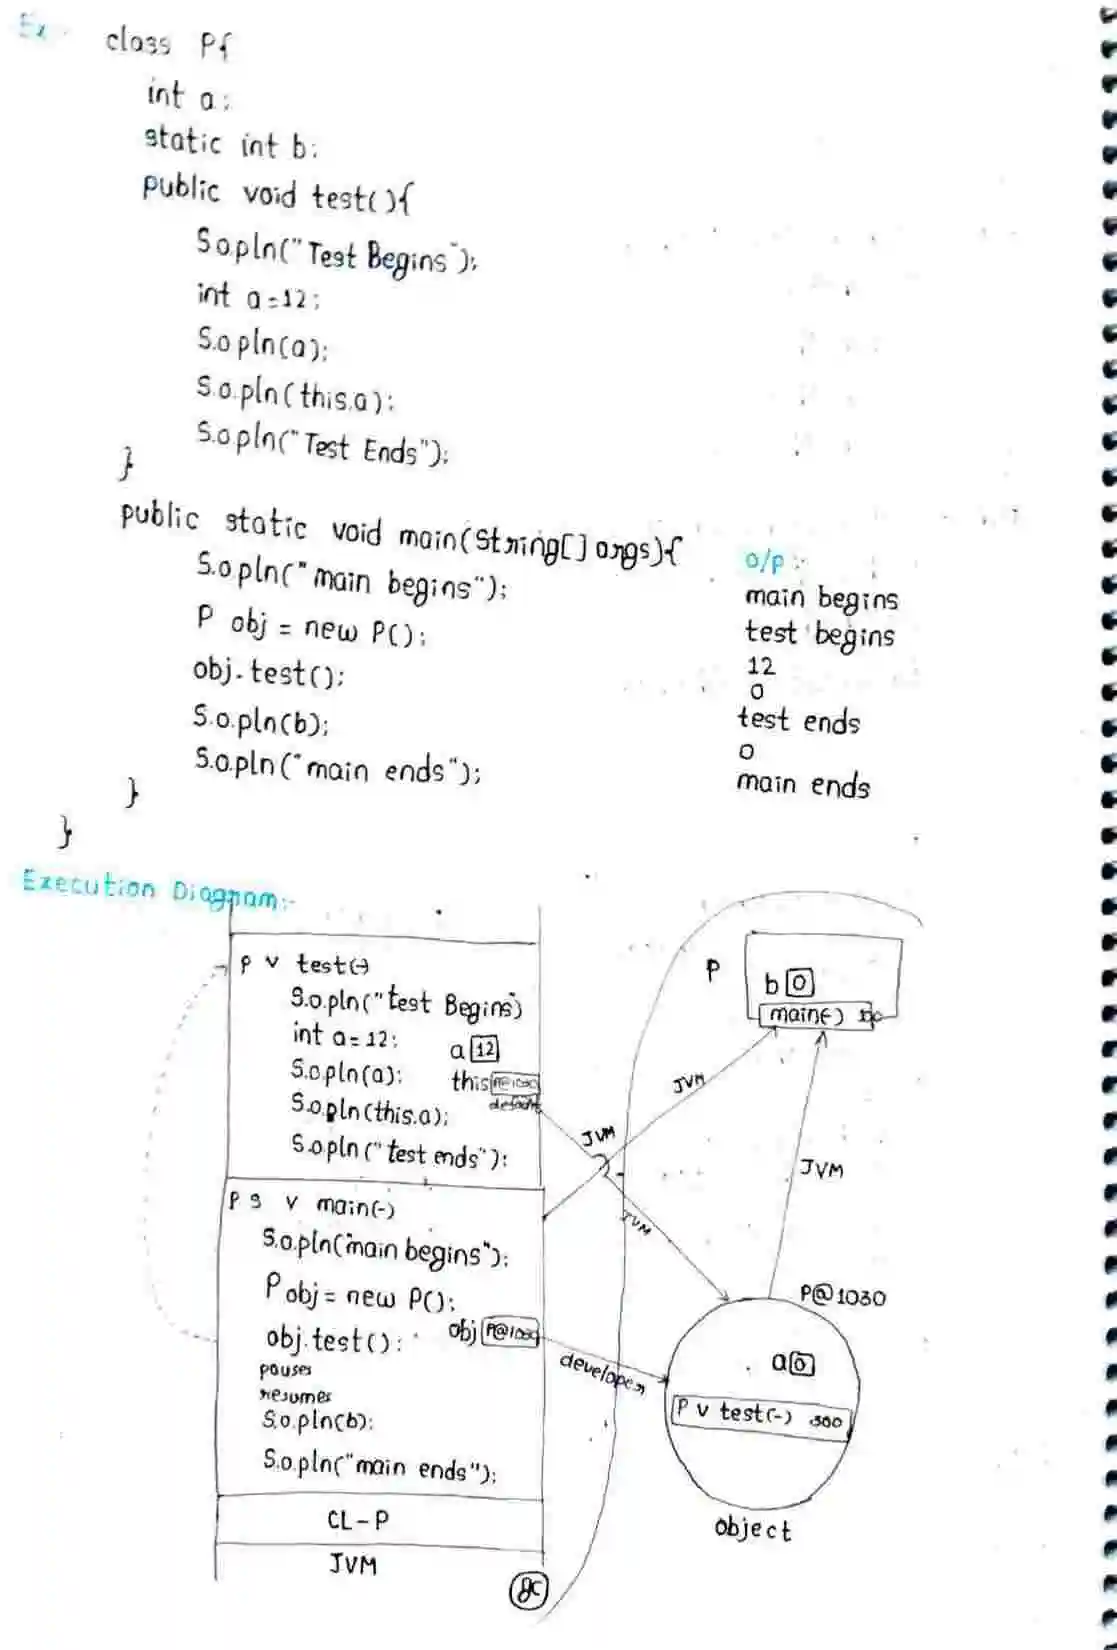 Ex:-
class P{
int a;
static int b;
public void test(){
S.o.pln("Test Begins");
int a=12;
S.o.pln(a);
S.o.pln(this.a);
S.o.pln("Test Ends");
}
public static void main(String[] args){
S.o.pln("main begins");
P obj = new P();
obj.test();
S.o.pln(b);
S.o.pln("main ends");
}
}
o/p:-
main begins
test begins
12
0
test ends
0
main ends
Execution Diagram:-
P v test(-)
S.o.pln("test Begins")
int a=12;
a 12
S.o.pln(a);
this P@1030
default
S.o.pln(this.a);
S.o.pln("test ends");
P s v main(-)
S.o.pln("main begins");
P obj = new P();
obj.test();
obj P@1030
pauses
resumes
S.o.pln(b);
S.o.pln("main ends");
CL-P
JVM
gc
P
b 0
main(-)
JVM
JVM
JVM
JVM
developer
P@1030
a 0
P v test(-) 300
object